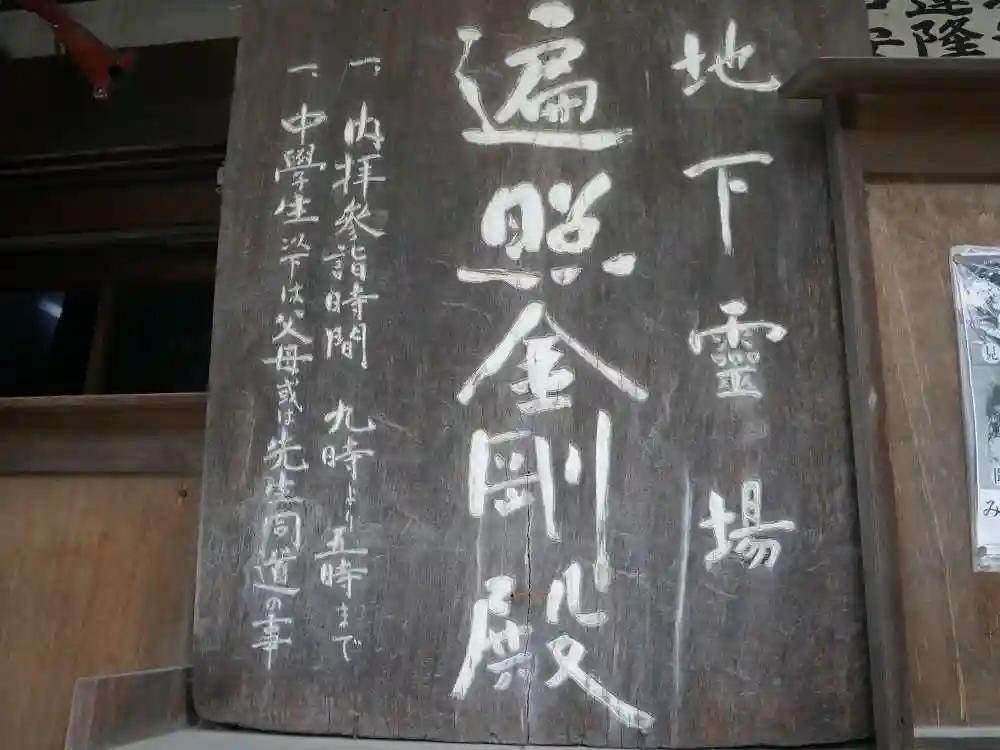 地下靈場
遍照金剛殿
一、内拝参詣時間 九時より五時まで
一、中學生以下は父母或は先生同道の事